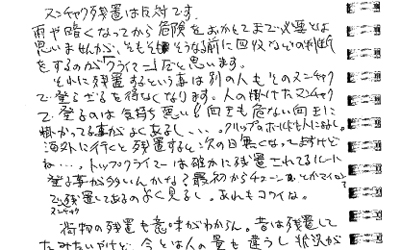 ヌンチャク残置は反対です。
雨や暗くなってから危険をおかしてまで必要とは
思いませんが、そもそもそうなる前に回収などの判断
をするのがクライマーだと思います。
それに残置するという事は別の人もそのヌンチャク
で登らざるを得なくなります。人の掛けたヌンチャク
で登るのは気持ち悪い！向きも危ない向きに
掛かってる事がよくあるし、、、。クリップのホールドも人による。
海外に行くと残置すると、次の日無くなってますけど
ね…。トップクライマーは確かに残置されてるルートに
登る事が多いんかな？最初からチェーン
で残置してあるのよく見るし。あれもコワイな。
ヌンチャク
荷物の残置も意味がわからん。昔は残置して
たみたいやけど、今とは人の量も違うし状況が